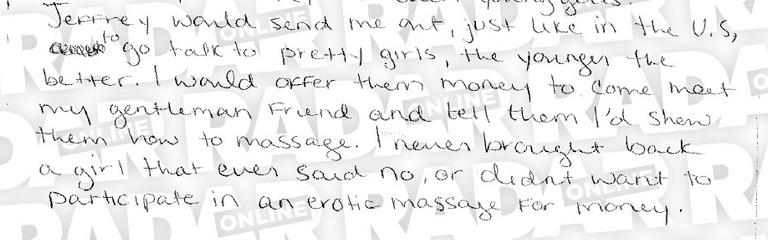 Jeffrey would send me out, just like in the U.S,
to go talk to pretty girls, the younger the
better. I would offer them money to come meet
my gentleman Friend and tell them I'd show
them how to massage. I never brought back
a girl that ever said no, or didn't want to
participate in an erotic massage For money.